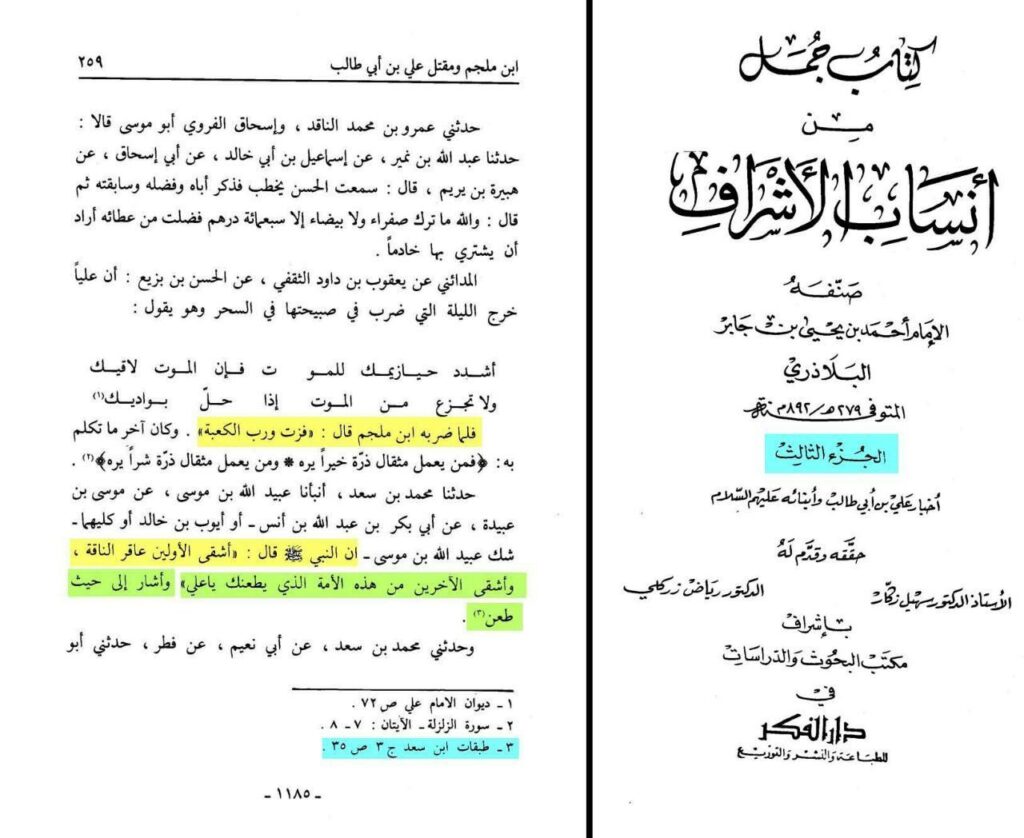 كتاب جمل
من
أنساب الأشراف
صنفه
الإمام أحمد بن يحيى بن جابر
البلاذري
المتوفى ٢٧٩ﻫ/٨٩٢م
الجزء الثالث
أخبار علي بن أبي طالب وأبنائه عليهم السلام
حققه وقدم له
الأستاذ الدكتور سهيل زكار الدكتور رياض زركلي
بإشراف
مكتب البحوث والدراسات
في
دار الفكر
للطباعة والنشر والتوزيع
ابن ملجم ومقتل علي بن أبي طالب ٢٥٩
حدثني عمرو بن محمد الناقد ، وإسحاق الفروي أبو موسى قالا :
حدثنا عبد الله بن نمير ، عن إسماعيل بن أبي خالد ، عن أبي إسحاق ، عن
هبيرة بن يريم ، قال : سمعت الحسن يخطب فذكر أباه وفضله وسابقته ثم
قال : والله ما ترك صفراء ولا بيضاء إلا سبعمائة درهم فضلت من عطائه أراد
أن يشتري بها خادماً .
المدائني عن يعقوب بن داود الثقفي ، عن الحسن بن بزيع : أن علياً
خرج الليلة التي ضرب في صبيحتها في السحر وهو يقول :
أشدد حيازيمك للمو ت فإن الموت لاقيك
ولا تجزع من الموت إذا حلّ بواديك(١)
فلما ضربه ابن ملجم قال : «فزت ورب الكعبة» . وكان آخر ما تكلم
به : ﴿فمن يعمل مثقال ذرّة خيراً يره * ومن يعمل مثقال ذرّة شراً يره﴾(٢) .
حدثنا محمد بن سعد ، أنبأنا عبيد الله بن موسى ، عن موسى بن
عبيدة ، عن أبي بكر بن عبد الله بن أنس ـ أو أيوب بن خالد أو كليهما ـ
شك عبيد الله بن موسى ـ ان النبي ﷺ قال : «أشقى الأولين عاقر الناقة ،
وأشقى الآخرين من هذه الأمة الذي يطعنك ياعلي» وأشار إلى حيث
طعن(٣) .
وحدثني محمد بن سعد ، عن أبي نعيم ، عن فطر ، حدثني أبو
١ ـ ديوان الامام علي ص ٧٢ .
٢ ـ سورة الزلزلة ـ الآيتان : ٧ ـ ٨ .
٣ ـ طبقات ابن سعد ج ٣ ص ٣٥ .
ـ ١١٨٥ ـ